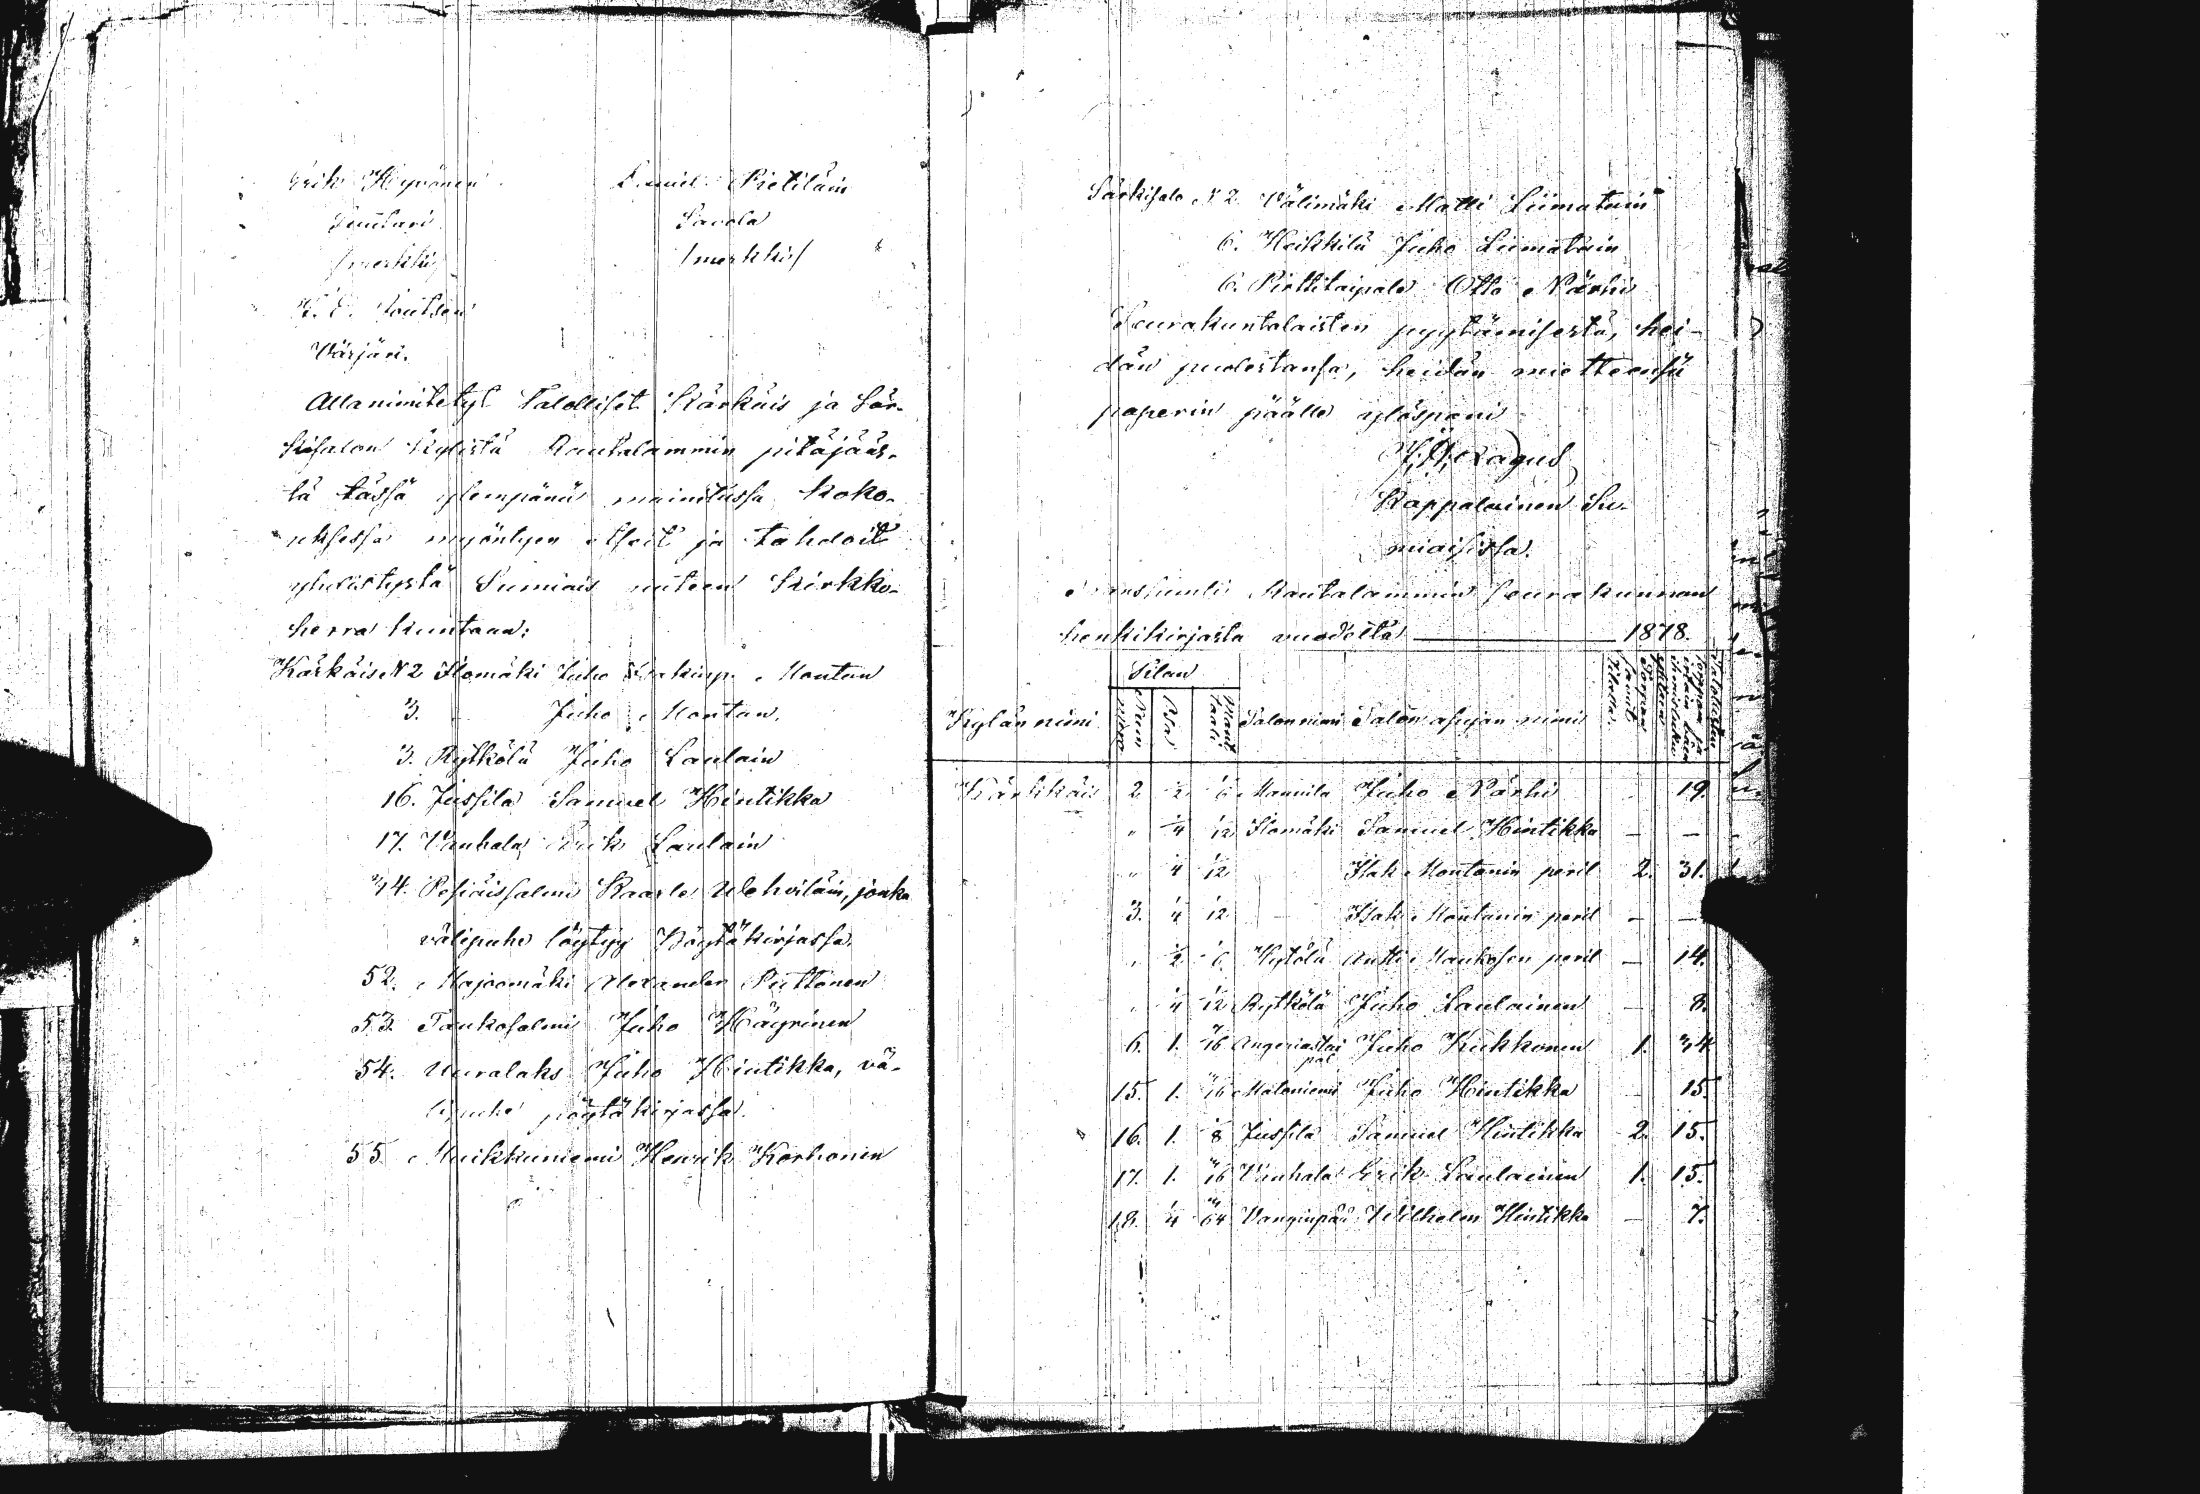 Erik Hyvönen
Suutari
/merkki/
K. E. Joutsen
Värjäri.
Daniel Pietiläin
Savola
/merkki/
Allanimitetyt Talolliset Kärkäis ja Sär-
kisalon Kylistä Rautalammin pitäjääs-
tä tässä ylempänä mainitussa koko-
uksessa myöntyen itseit ja tahdoit
yhdistystä Sumiais uuteen Kirkko-
herra kuntaan:
Kärkäis N 2 Ilomäki Juho Montan
3. Juho Montan.
3. Rytkölä Juho Laulain
16. Jussila Samuel Hintikka
17. Vanhala Erik Laulain
34. Pesiäissalmi Kaarle Wehviläin, jonka
välipuhe löytyy Pöytäkirjassa.
52. Majoomäki Alexander Puttonen
53. Taukosalmi Juho Häyrinen
54. Uuralaks Juho Hintikka, vä-
lipuhe pöytäkirjassa.
55 Muikkuniemi Henrik Korhonen
Särkisalo N 2. Välimäki Matti Liimatain
6. Heikkilä Juho Liimatain
6. Pirttitaipale Otto Närhi
Seurakuntalaisten pyytämisestä, hei-
dän puolestansa, heidän mietteensä
paperin päälle ylöspani
Kappalainen Su-
miaisissa.
Rautalammin seurakunnan
henkikirjasta vuodelta 1878.
Tilan
Kylän nimi Numero Osa Mant taali Talon nimi Talon asujan nimi
Kärkkäis 2. 1/2 1/6 Mannila Juho Närhi 19.
" 1/4 1/12 Ilomäki Samuel Hintikka — —
" 1/4 1/12 Isak Montanin peril 2. 31.
3. 1/4 1/12 Isak Montanin peril — —
" 1/2 1/6 Kytölä Antti Maukosen peril — 14.
" 1/4 1/12 Rytkölä Juho Laulainen — 8.
6. 1. Angeriastai pal Juho Kukkonen 1. 34
15. 1. Mataniemi Juho Hintikka — 15.
16. 1. Jussila Samuel Hintikka 2. 15.
17. 1. Vanhala Erik Laulainen 1. 15.
18. 1/4 Vanginpää Wilhelm Hintikka — 7.